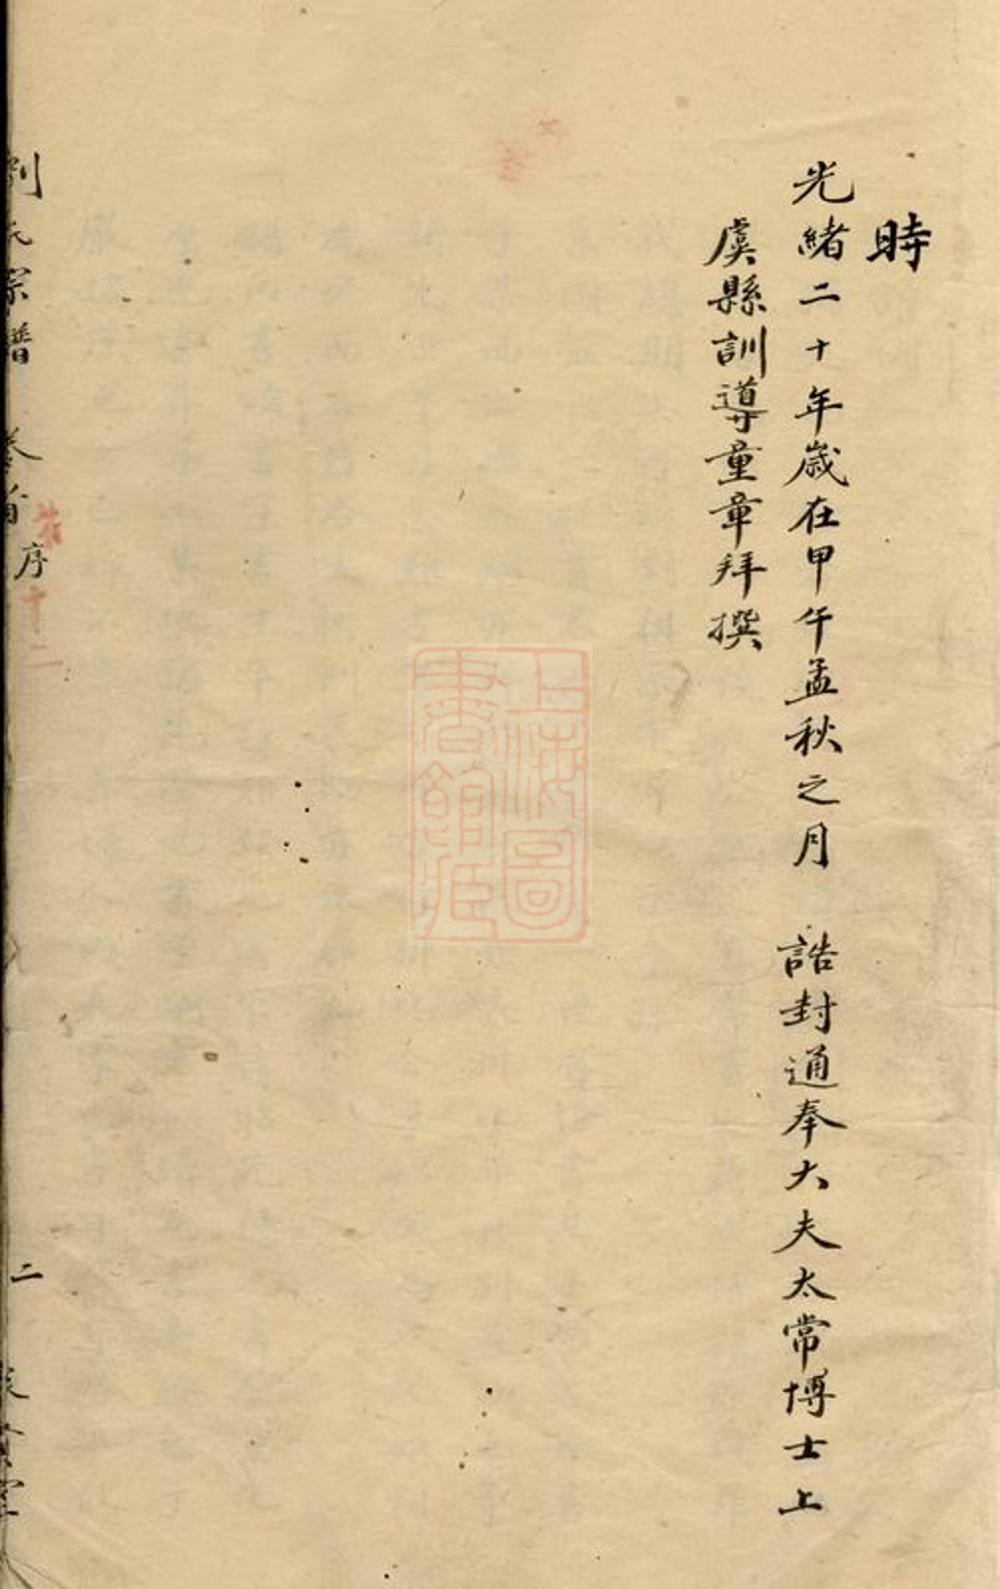 時
光緒二十年歲在甲午孟秋之月　誥封通奉大夫太常博士上
虞縣訓導童章拜撰
劉氏宗譜　卷首　序　二
上海圖書館藏